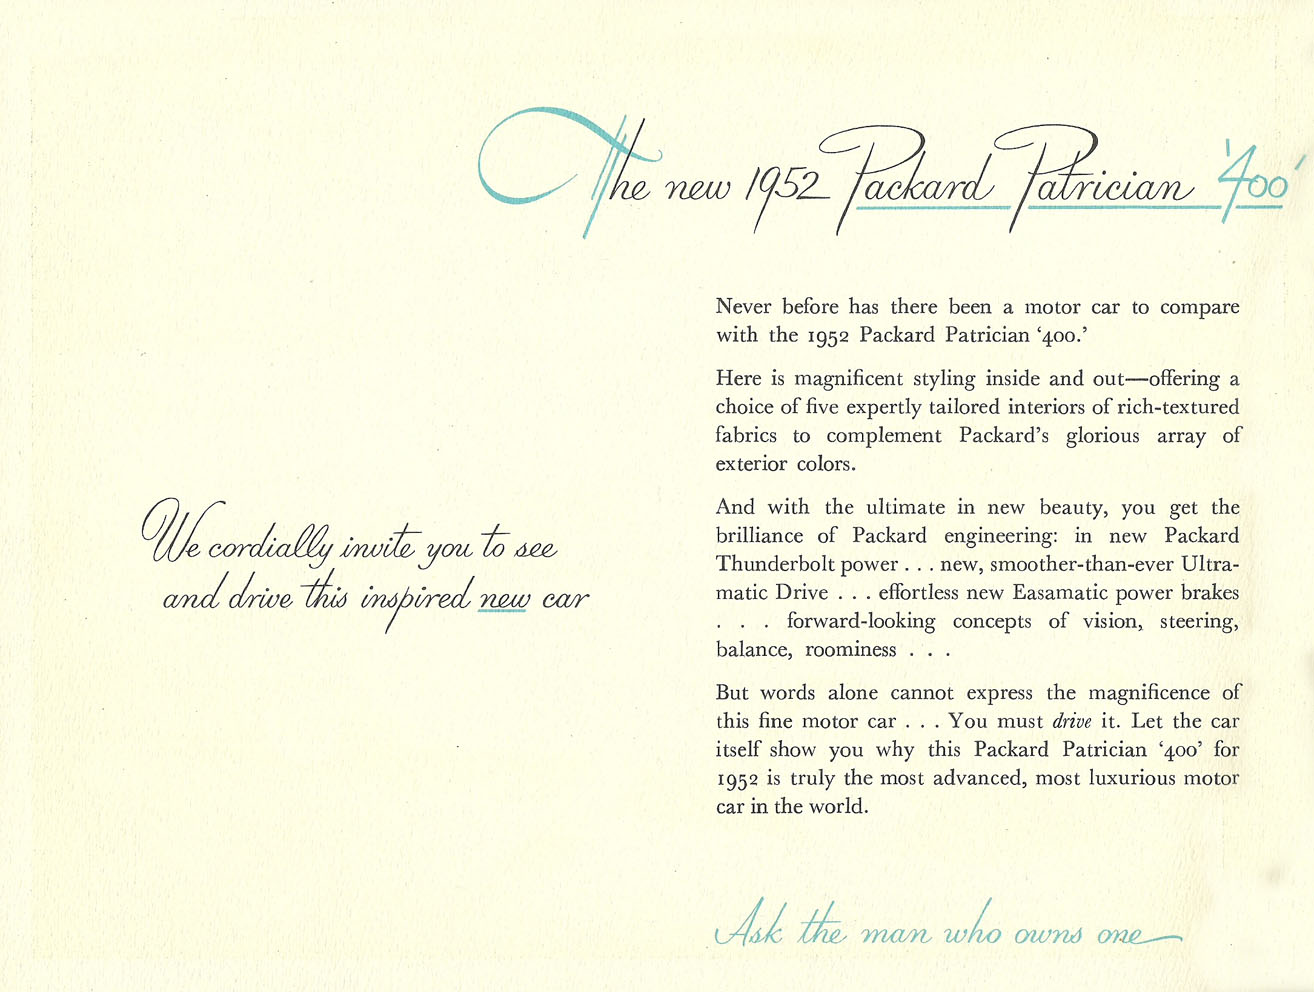 The new 1952 Packard Patrician '400'
We cordially invite you to see
and drive this inspired new car
Never before has there been a motor car to compare
with the 1952 Packard Patrician ‘400.’
Here is magnificent styling inside and out—offering a
choice of five expertly tailored interiors of rich-textured
fabrics to complement Packard’s glorious array of
exterior colors.
And with the ultimate in new beauty, you get the
brilliance of Packard engineering: in new Packard
Thunderbolt power . . . new, smoother-than-ever Ultra-
matic Drive . . . effortless new Easamatic power brakes
. . . forward-looking concepts of vision, steering,
balance, roominess . . .
But words alone cannot express the magnificence of
this fine motor car . . . You must drive it. Let the car
itself show you why this Packard Patrician ‘400’ for
1952 is truly the most advanced, most luxurious motor
car in the world.
Ask the man who owns one